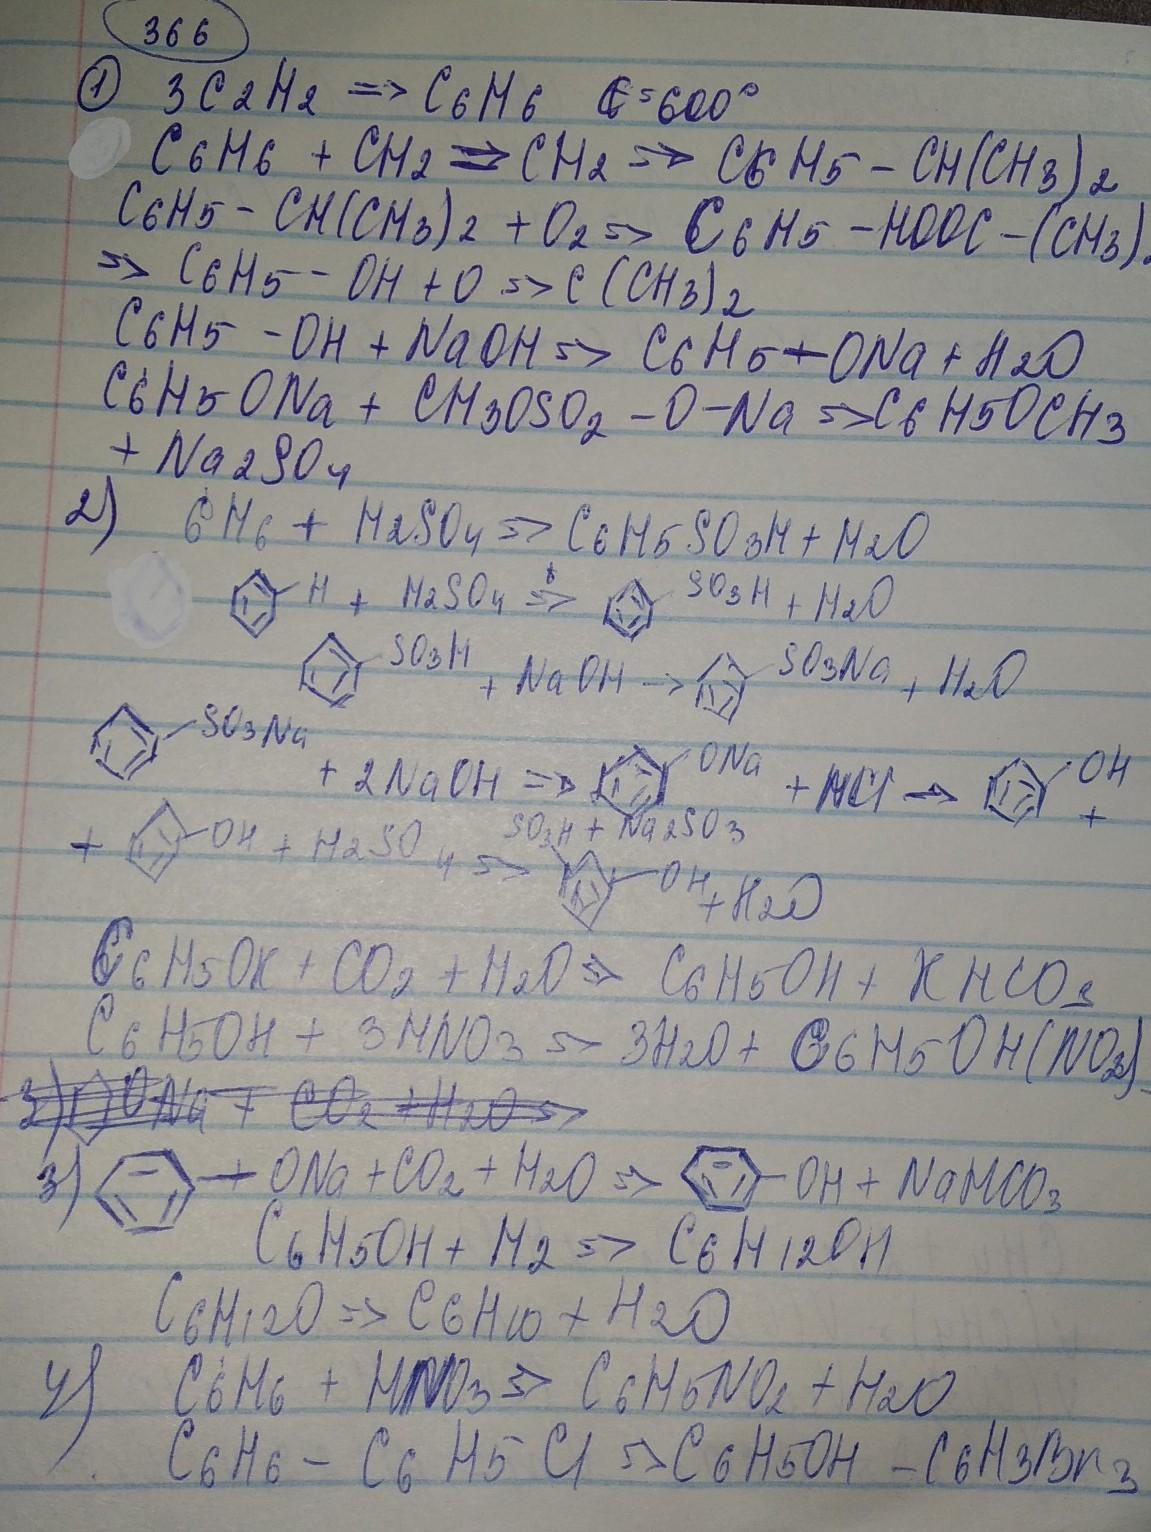 366
1 3C2H2 => C6H6 t=600°
C6H6 + CH2 = CH2 => C6H5 - CH(CH3)2
C6H5 - CH(CH3)2 + O2 => C6H5 - HOOC - (CH3)2
=> C6H5 - OH + O => C(CH3)2
C6H5 - OH + NaOH => C6H5 + ONa + H2O
C6H5ONa + CH3OSO2 - O - Na => C6H5OCH3
+ Na2SO4
2) C6H6 + H2SO4 => C6H5SO3H + H2O
H + H2SO4 t => SO3H + H2O
SO3H + NaOH -> SO3Na + H2O
SO3Na + 2NaOH => ONa + HCl -> OH +
+ OH + H2SO4 => SO3H + Na2SO3
OH + H2O
C6H5OK + CO2 + H2O => C6H5OH + KHCO3
C6H5OH + 3HNO3 => 3H2O + C6H5OH(NO2)
3) ONa + CO2 + H2O =>
3) + ONa + CO2 + H2O => OH + NaHCO3
C6H5OH + H2 => C6H12OH
C6H12O => C6H10 + H2O
4) C6H6 + HNO3 => C6H5NO2 + H2O
C6H6 - C6H5Cl => C6H5OH - C6H3Br3